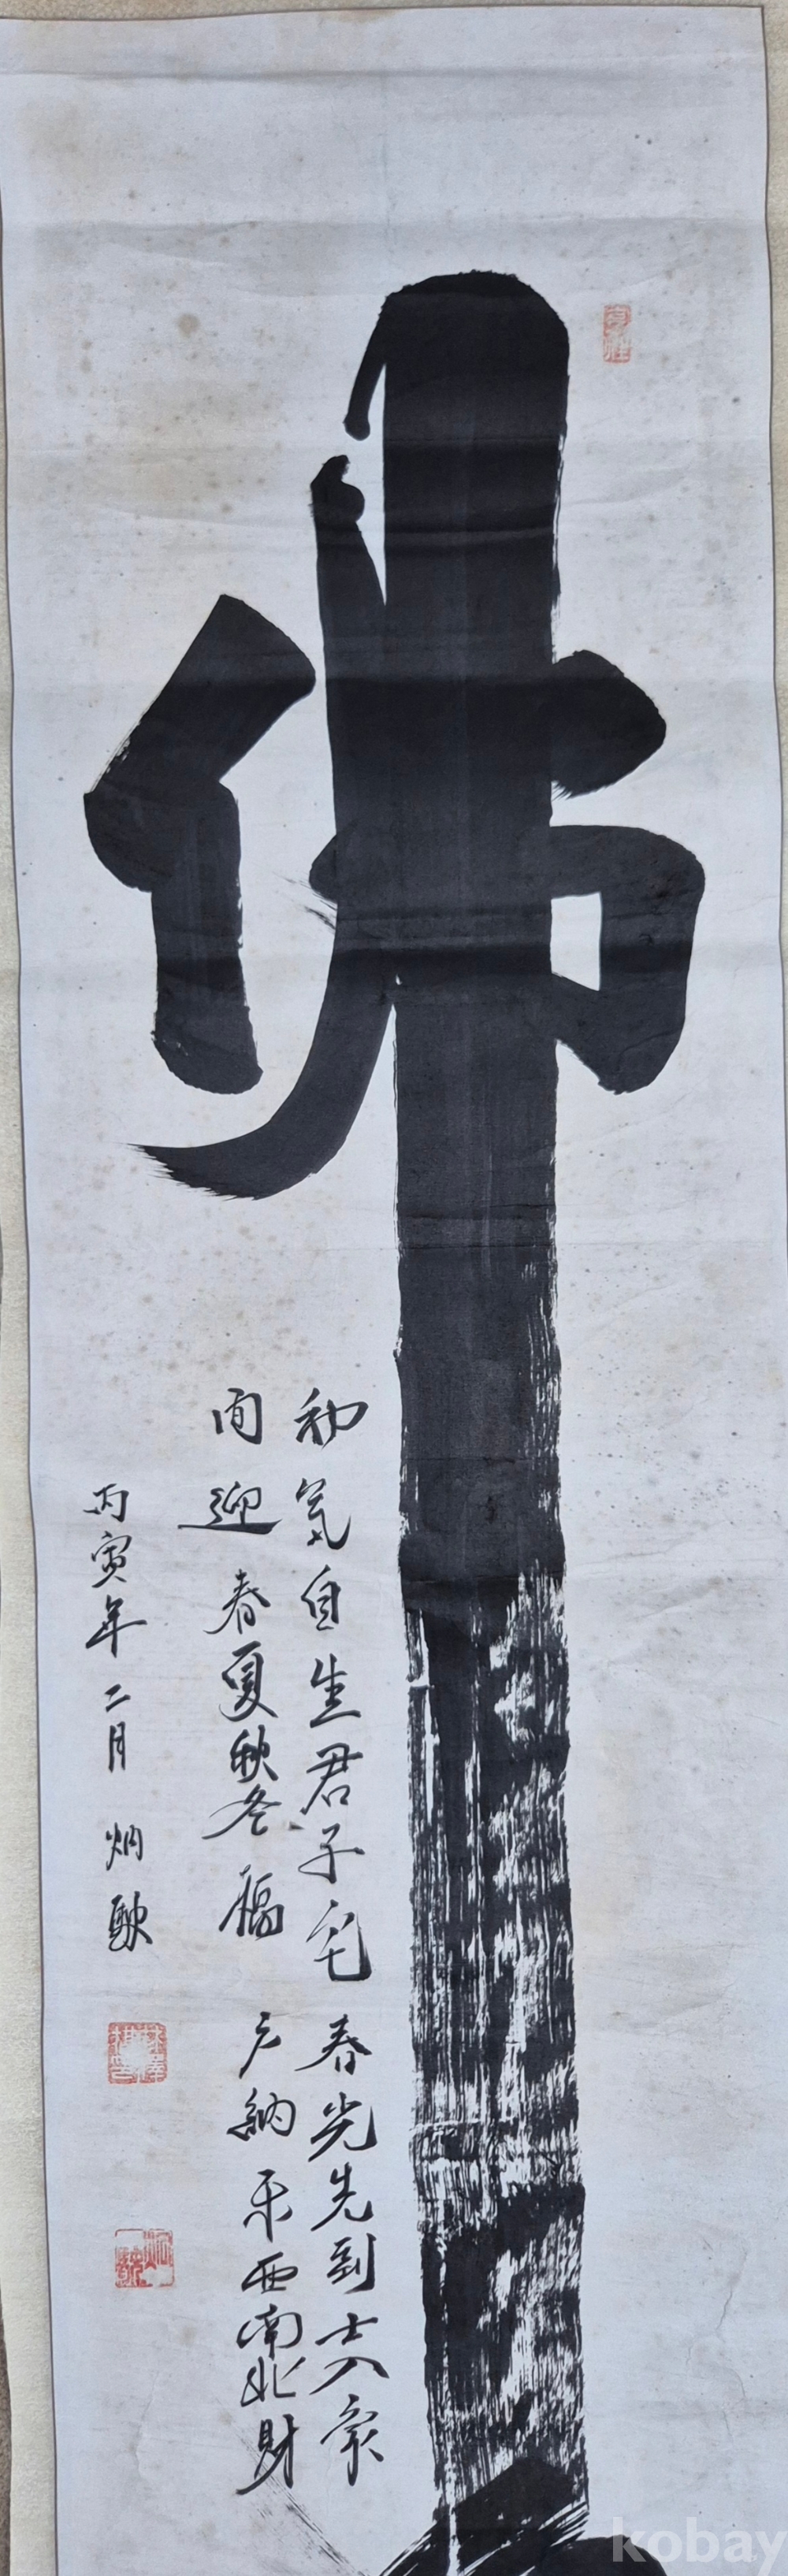 佛
和氣自生君子宅 春光先到士人家
門迎春夏秋冬福 戶納東西南北財
丙寅年二月 炳
kobay